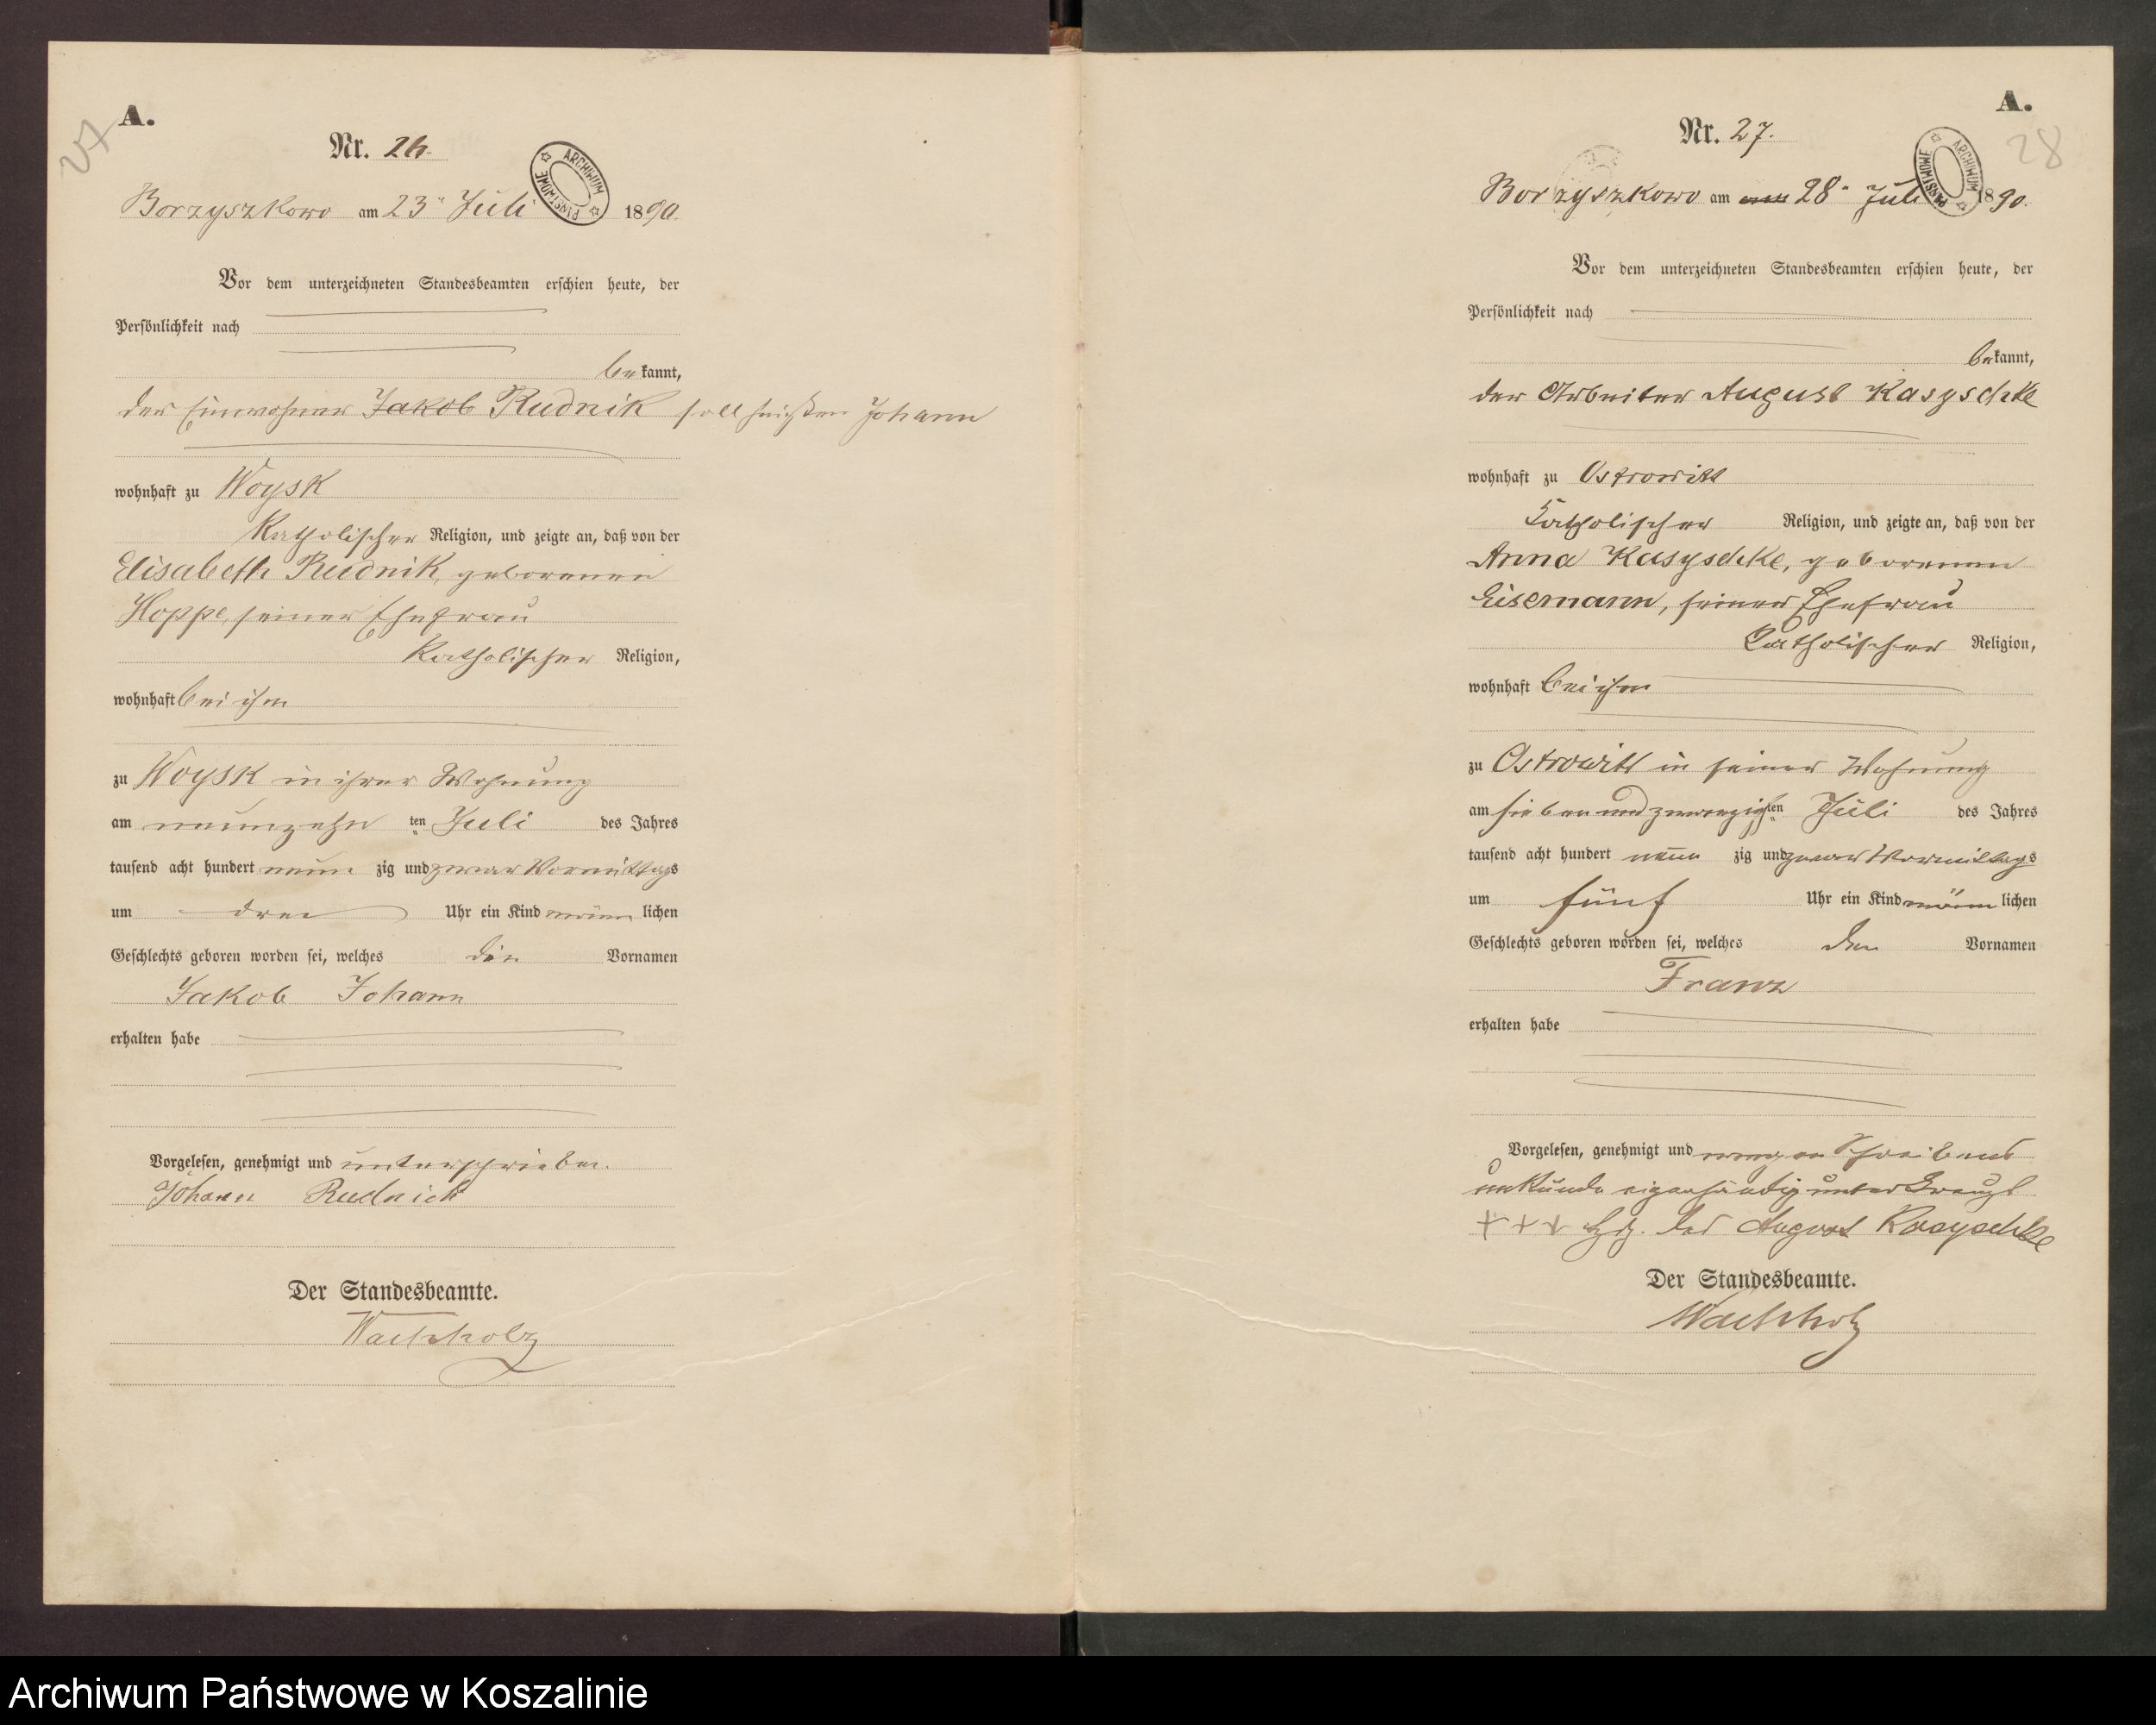 27
A.
Nr. 26.
ARCHIWUM PAŃSTWOWE
Borzyszkowo am 23ᵗ Juli 1890.
Vor dem unterzeichneten Standesbeamten erschien heute, der
Persönlichkeit nach
bekannt,
der Einwohner Jakob Rudnik soll heißen Johann
wohnhaft zu Woysk
Katholischer Religion, und zeigte an, daß von der
Elisabeth Rudnik, geborenen
Hoppe, seiner Ehefrau
Katholischer Religion,
wohnhaft bei ihm
zu Woysk in ihrer Wohnung
am neunzehn ten Juli des Jahres
tausend acht hundert neun zig und zwar Vormittags
um drei Uhr ein Kind männ lichen
Geschlechts geboren worden sei, welches die Vornamen
Jakob Johann
erhalten habe
Vorgelesen, genehmigt und unterschrieben.
Johann Rudnick
Der Standesbeamte.
Wachholz
A.
28
Nr. 27.
ARCHIWUM PAŃSTWOWE
Borzyszkowo am am 28ᵗ Juli 1890.
Vor dem unterzeichneten Standesbeamten erschien heute, der
Persönlichkeit nach
bekannt,
der Arbeiter August Kasyschke
wohnhaft zu Ostrowitt
Katholischer Religion, und zeigte an, daß von der
Anna Kasyschke, geborenen
Eisemann, seiner Ehefrau
Katholischer Religion,
wohnhaft bei ihm
zu Ostrowitt in seiner Wohnung
am siebenundzwanzigsten Juli des Jahres
tausend acht hundert neun zig und zwar Vormittags
um fünf Uhr ein Kind männ lichen
Geschlechts geboren worden sei, welches den Vornamen
Franz
erhalten habe
Vorgelesen, genehmigt und wegen Schreibens
unkunde eigenhändig unterkreuzt
+++ Hdz. des August Kasyschke
Der Standesbeamte.
Wachholz
Archiwum Państwowe w Koszalinie